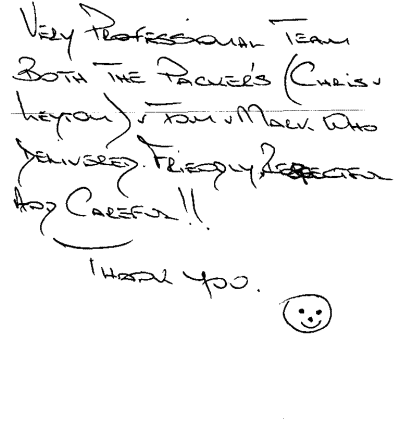 Very Professional Team
Both The Packer's (Chris &
Leyton) & Tom & Mark Who
Delivered. Friendly, Respectful
And Careful!!
Thank you.